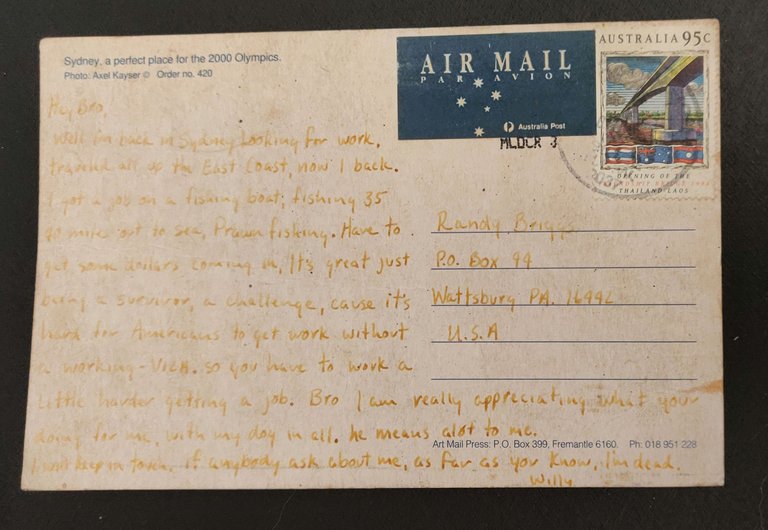 Sydney, a perfect place for the 2000 Olympics.
Photo: Axel Kayser © Order no. 420
AIR MAIL
PAR AVION
Australia Post
AUSTRALIA 95c
OPENING OF THE
FRIENDSHIP BRIDGE 1994
THAILAND-LAOS
MLOCR 3
Hey Bro,
Well im back in Sydney Looking for work,
traveled all up the East Coast, now I back.
I got a job on a fishing boat, fishing 35
40 miles out to sea, Prawn fishing. Have to
get some dollars coming in, It's great just
being a survivor, a challenge, cause it's
hard for Americans to get work without
a working-VIZA. so you have to work a
Little harder getting a job. Bro I am really appreciating what your
doing for me, with my dog in all. he means alot to me.
I wont keep in touch, if anybody ask about me, as far as you know, I'm dead.
Willy
Randy Briggs
P.O. Box 94
Wattsburg PA. 16442
U.S.A
Art Mail Press: P.O. Box 399, Fremantle 6160. Ph: 018 951 228